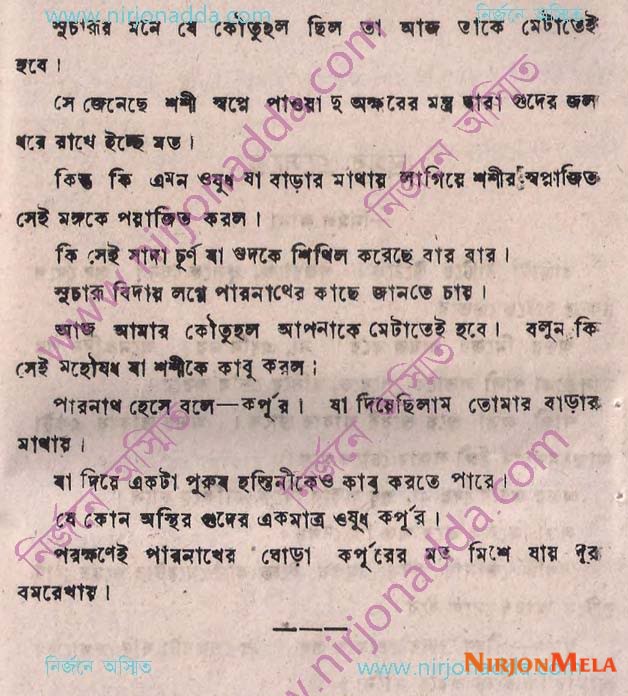 www.nirjonadda.com নির্জনে অস্মিত
সুচারুর মনে যে কৌতুহল ছিল তা আজ তাকে মেটাতেই
হবে।
সে জেনেছে শশী স্বপ্নে পাওয়া দু অক্ষরের মন্ত্র দ্বারা গুদের জল
ধরে রাখে ইচ্ছে মত।
কিন্তু কি এমন ওষুধ যা বাড়ার মাথায় লাগিয়ে শশীর স্বপ্নার্জিত
সেই মন্ত্রকে পরাজিত করল।
কি সেই সাদা চূর্ণ যা গুদকে শিথিল করেছে বার বার।
সুচারু বিদায় লগ্নে পারনাথের কাছে জানতে চায়।
আজ আমার কৌতুহল আপনাকে মেটাতেই হবে। বলুন কি
সেই মহৌষধ যা শশীকে কাবু করল;
পারনাথ হেসে বলে—কর্পূর। যা দিয়েছিলাম তোমার বাড়ার
মাথায়।
যা দিয়ে একটা পুরুষ হস্তিনীকেও কাবু করতে পারে।
যে কোন অস্থির গুদের একমাত্র ওষুধ কর্পূর।
পরক্ষণেই পারনাথের ঘোড়া কর্পূরের মত মিশে যায় দূর
বনরেখায়।
www.nirjonadda.com
নির্জনে অস্মিত
নির্জনে অস্মিত
নির্জনে অস্মিত
www.nirjonadda.com
নির্জনে অস্মিত www.nirjonadda.com
NIRJONMELA